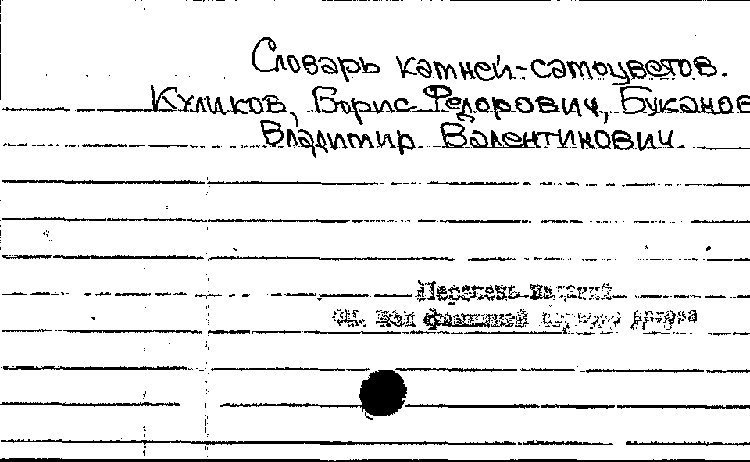 Словарь камней-самоцветов.
Куликов, Борис Федорович, Буканов
Владимир Валентинович.
Перечень изданий
см. под фамилией первого автора